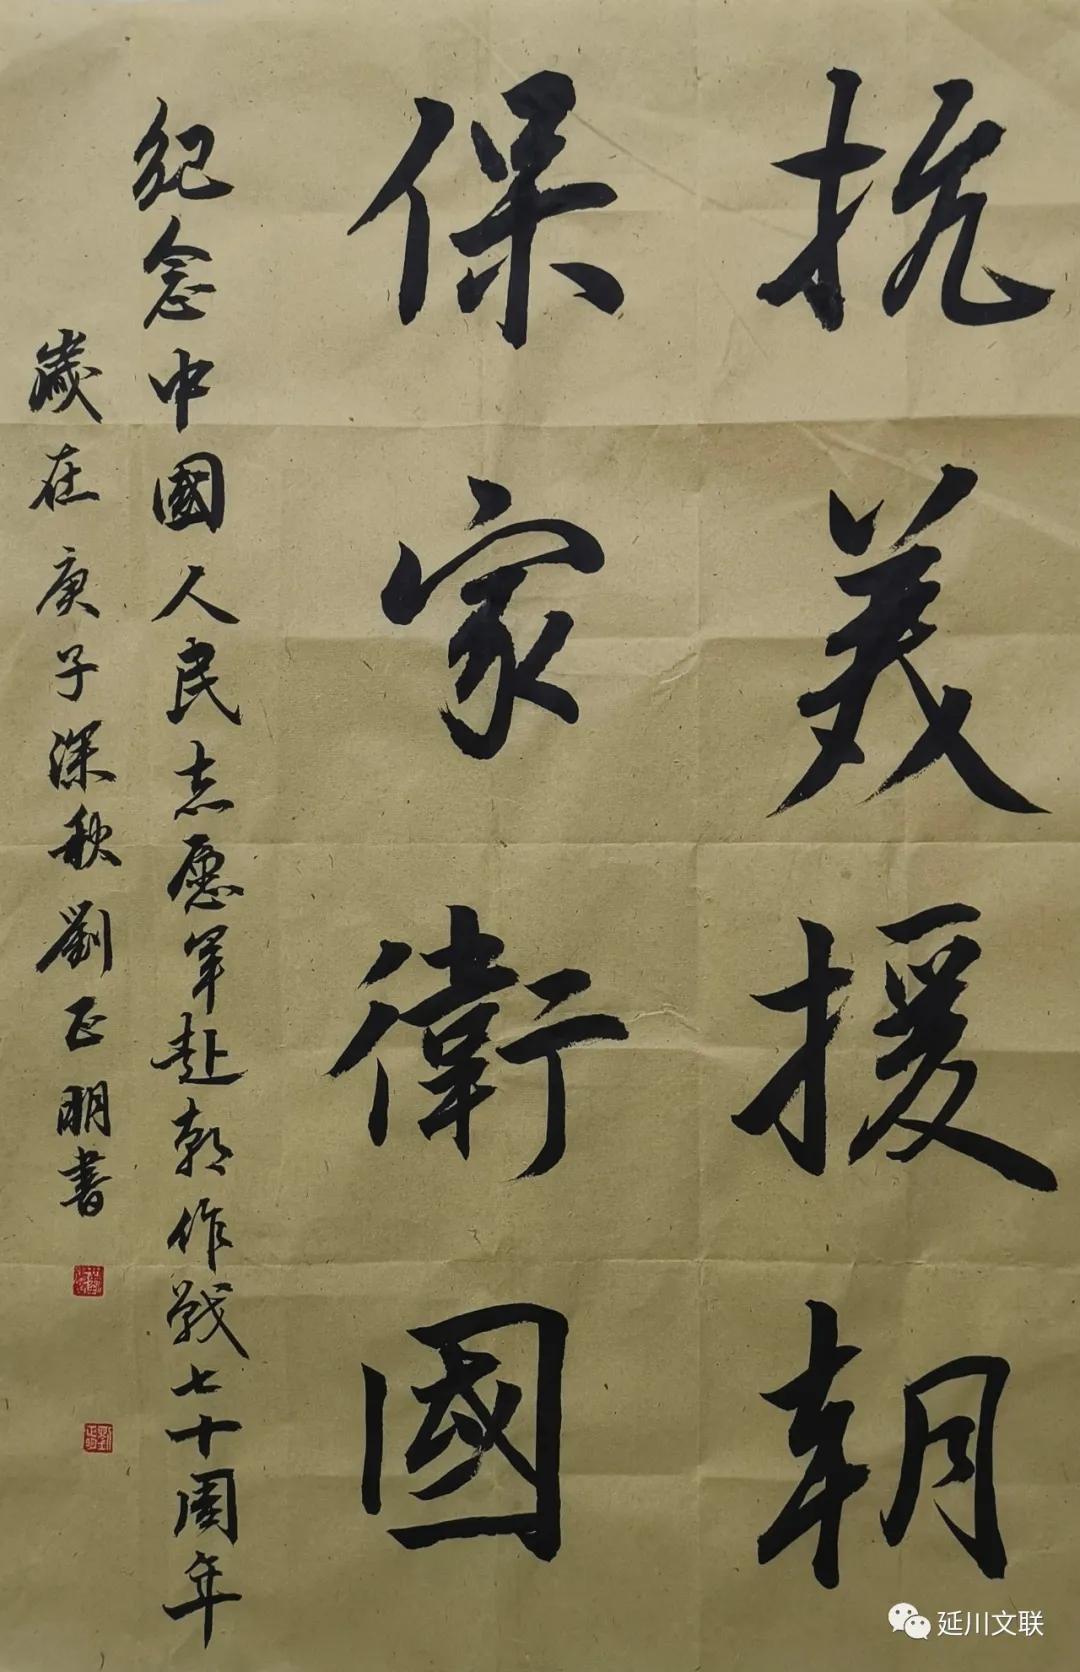 抗美援朝
保家衛國
紀念中國人民志愿军赴朝作戰七十周年
歲在庚子深秋劉正明書
劉正明
延川文联